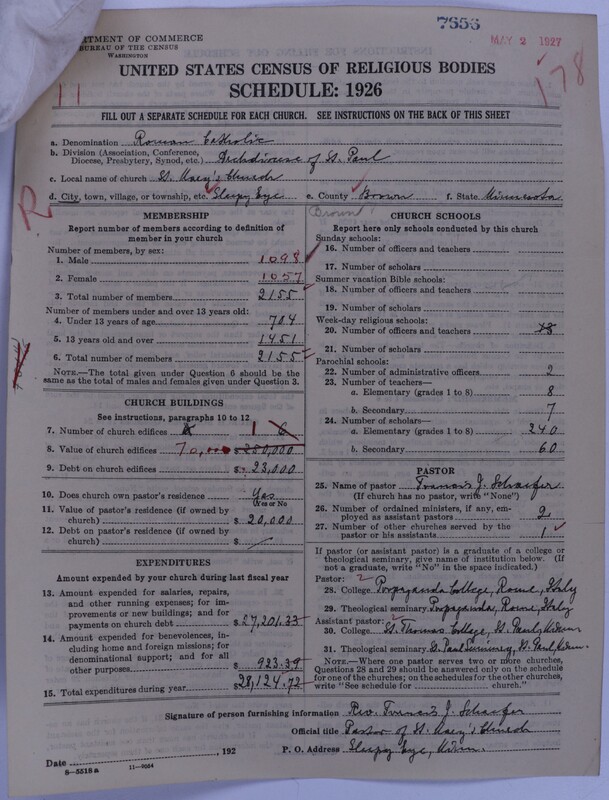 7656
MAY 2 1927
178
11
DEPARTMENT OF COMMERCE
BUREAU OF THE CENSUS
WASHINGTON
UNITED STATES CENSUS OF RELIGIOUS BODIES
SCHEDULE: 1926
FILL OUT A SEPARATE SCHEDULE FOR EACH CHURCH. SEE INSTRUCTIONS ON THE BACK OF THIS SHEET
a. Denomination Roman Catholic
b. Division (Association, Conference, Diocese, Presbytery, Synod, etc.) Archdiocese of St. Paul
c. Local name of church St. Mary's Church
d. City, town, village, or township, etc. Sleepy Eye e. County Brown f. State Minnesota
Brown
R
MEMBERSHIP
Report number of members according to definition of
member in your church
Number of members, by sex:
1. Male 1098
2. Female 1057
3. Total number of members 2155
Number of members under and over 13 years old:
4. Under 13 years of age 704
5. 13 years old and over 1451
6. Total number of members 2155
NOTE.—The total given under Question 6 should be
same as the total of males and females given under Question 3.
CHURCH BUILDINGS
See instructions, paragraphs 10 to 12
7. Number of church edifices 1 6
8. Value of church edifices 70,000 $250,000
9. Debt on church edifices $ 23,000
10. Does church own pastor's residence Yes
Yes or No
11. Value of pastor's residence (if owned by
church) $ 20,000
12. Debt on pastor's residence (if owned by
church) $
EXPENDITURES
Amount expended by your church during last fiscal year
13. Amount expended for salaries, repairs,
and other running expenses; for im-
provements or new buildings; and for
payments on church debt $37,201.33
14. Amount expended for benevolences,
including home and foreign missions; for
denominational support; and for all
other purposes $ 923.39
15. Total expenditures during year $38,124.72
CHURCH SCHOOLS
Report here only schools conducted by this church
Sunday schools:
16. Number of officers and teachers
17. Number of scholars
Summer vacation Bible schools:
18. Number of officers and teachers
19. Number of scholars
Week-day religious schools:
20. Number of officers and teachers
21. Number of scholars
Parochial schools:
22. Number of administrative officers 2
23. Number of teachers—
a. Elementary (grades 1 to 8) 8
b. Secondary 7
24. Number of scholars—
a. Elementary (grades 1 to 8) 240
b. Secondary 60
PASTOR
25. Name of pastor Francis J. Schaefer
(If church has no pastor, write "None")
26. Number of ordained ministers, if any, em-
ployed as assistant pastors 2
27. Number of other churches served by the
pastor or his assistants 1
If pastor (or assistant pastor) is a graduate of a college or
theological seminary, give name of institution below. (If
not a graduate, write "No" in the space indicated.)
Pastor: 2
28. College Propaganda College, Rome, Italy
29. Theological seminary Propaganda, Rome, Italy
Assistant pastor: 2
30. College St. Thomas College, St. Paul, Minn.
31. Theological seminary St. Paul Seminary, St. Paul, Minn.
NOTE.—Where one pastor serves two or more churches,
Questions 28 and 29 should be answered only on the schedule
for one of the churches; on the schedules for the other churches,
write "See schedule for church."
Signature of person furnishing information Rev. Francis J. Schaefer
Official title Pastor of St. Mary's Church
Date , 192 P. O. Address Sleepy Eye, Minn.
8-5518a 11-9054